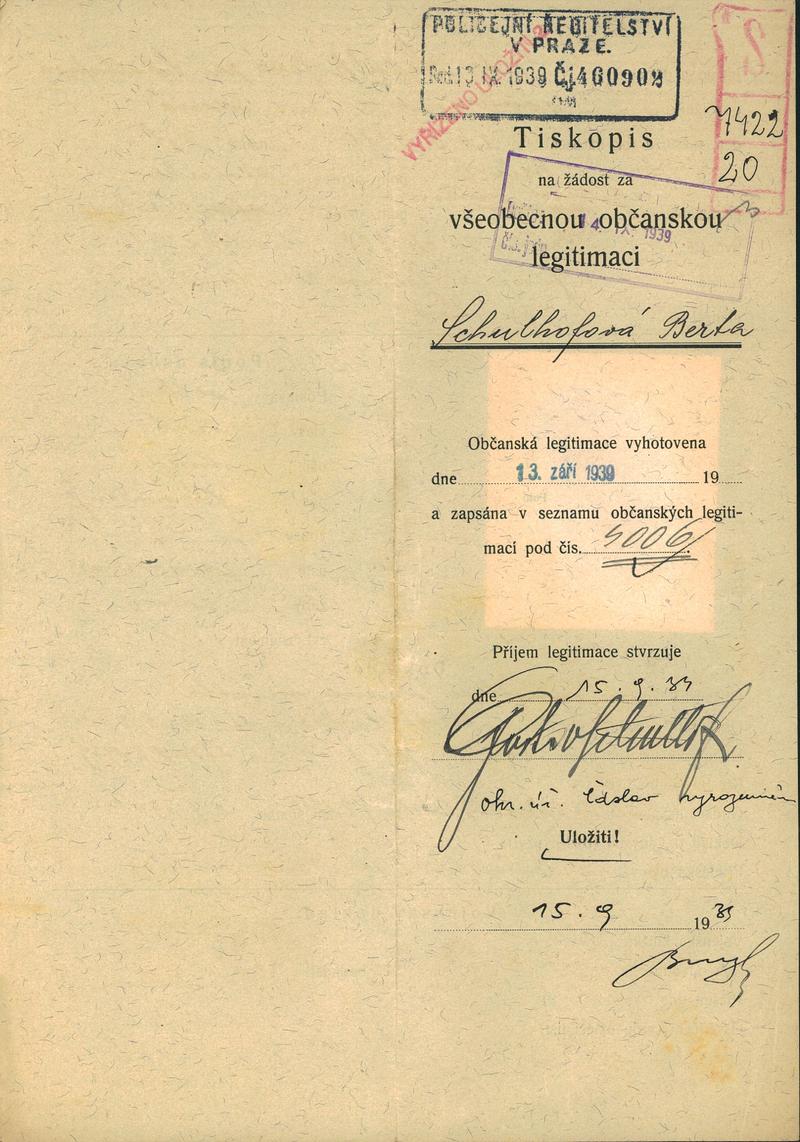 POLICEJNÍ ŘEDITELSTVÍ
V PRAZE.
13 IX 1939 Čj. 460902
VYŘÍZENO
7422
20
Tiskopis
na žádost za
všeobecnou občanskou
14. IX. 1939
legitimaci
Schulhofová Berta
Občanská legitimace vyhotovena
dne 13. září 1939 19
a zapsána v seznamu občanských legiti-
mací pod čís. 5006
Příjem legitimace stvrzuje
dne 15. 9. 39
okr. úř. Čáslav vyrozuměn
Uložiti!
15. 9 1939